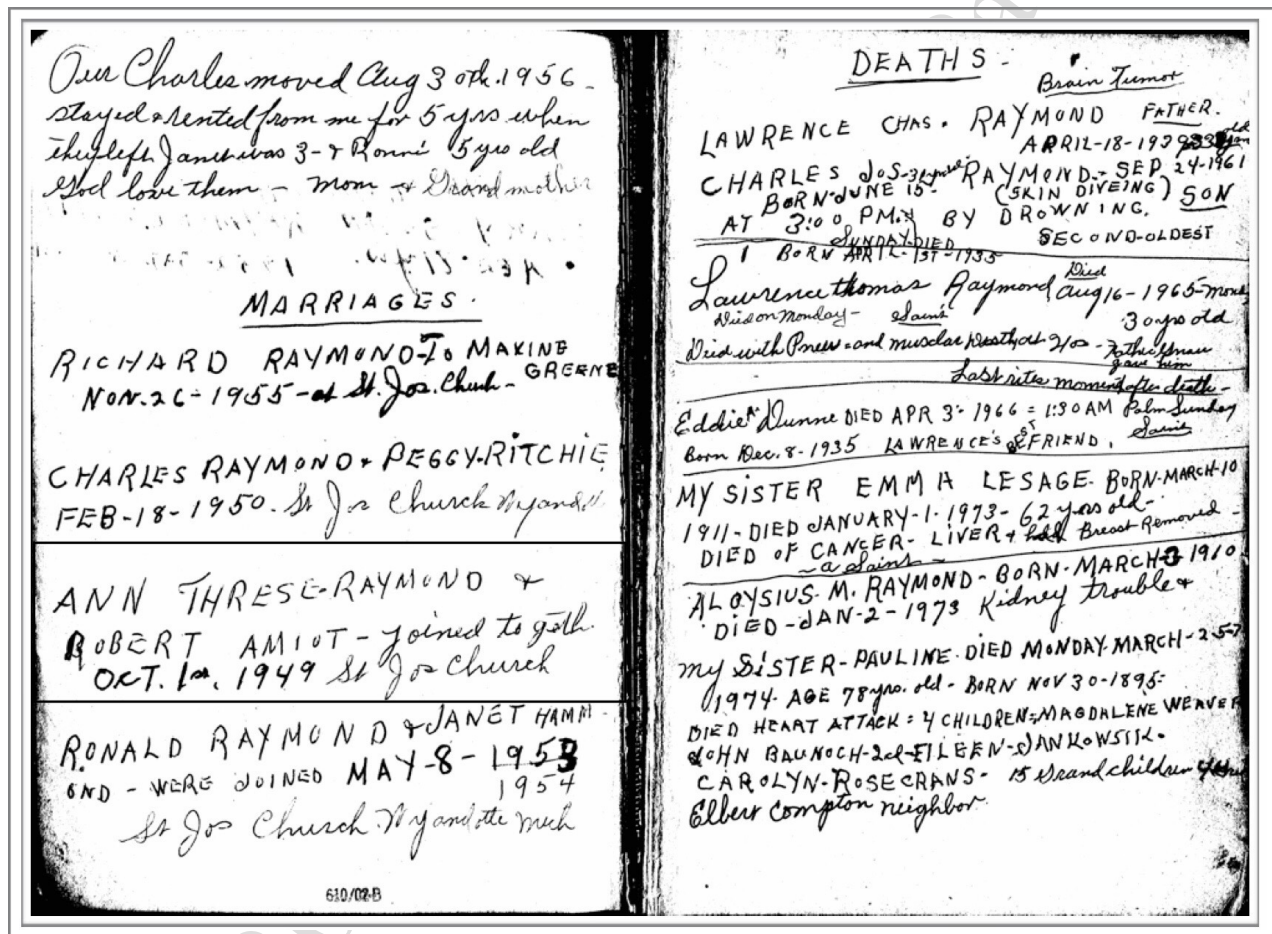 Our Charles moved Aug 30th. 1956 -
stayed & rented from me for 5 yrs when
they left Janet was 3 - & Ronni 5 yrs old
God love them - Mom & Grand mother
MARRIAGES.
RICHARD RAYMOND - To MAXINE
GREENE
NOV. 26 - 1955 - at St. Jos. Church -
CHARLES RAYMOND & PEGGY - RITCHIE
FEB - 18 - 1950. St Jos Church Wyandotte
ANN THRESE - RAYMOND &
ROBERT AMIOT - joined to geth.
OCT. 1st, 1949 St Jos Church
RONALD RAYMOND & JANET HAMM -
OND - WERE JOINED MAY - 8 - 1953
1954
St Jos Church Wyandotte Mich
610/02-B
DEATHS -
Brain Tumor
LAWRENCE CHAS. RAYMOND FATHER.
APRIL - 18 - 1939 old
CHARLES JOS - RAYMOND - SEP. 24 - 1961
BORN - JUNE 15 - (SKIN DIVEING) SON
AT 3:00 PM. BY DROWNING.
SUNDAY DIED SECOND - OLDEST
BORN APRIL - 1ST - 1935
Lawrence thomas Raymond Died Aug 16 - 1965 -
Died on Monday - Saint 30 yrs old
Died with Pneu = and muscular - Father
gave him
Last rites moments after death -
Eddie A. Dunne DIED APR 3 - 1966 = 1:30 AM Palm Sunday
Born Dec. 8 - 1935 LAWRENCE'S BEST FRIEND. Saint
MY SISTER EMMA LESAGE. BORN - MARCH - 10
1911 - DIED JANUARY - 1 - 1973 - 62 yrs old -
DIED OF CANCER - LIVER & Breast Removed -
- a Saint -
ALOYSIUS. M. RAYMOND - BORN - MARCH - 3 1910
DIED - JAN - 2 - 1973 Kidney trouble &
My SISTER - PAULINE. DIED MONDAY. MARCH - 25 -
1974. AGE 78 yrs. old - BORN NOV 30 - 1895 -
DIED HEART ATTACK = 4 CHILDREN = MAGDALENE WEAVER
JOHN BAUNOCH - 2ed - EILEEN - JANKOWSIK.
CAROLYN - ROSECRANS - 15 Grand children
Elbert Compton neighbor.